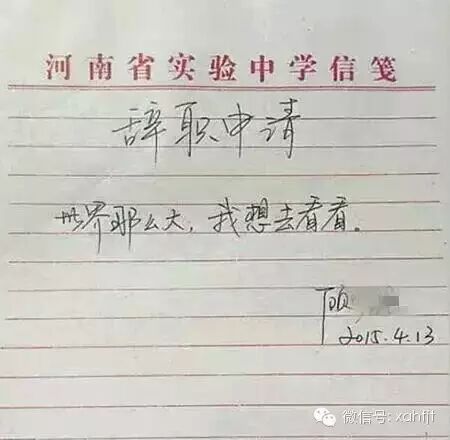 河南省实验中学信笺
辞职申请
世界那么大，我想去看看。
顾
2015.4.13
微信号: xahfjt